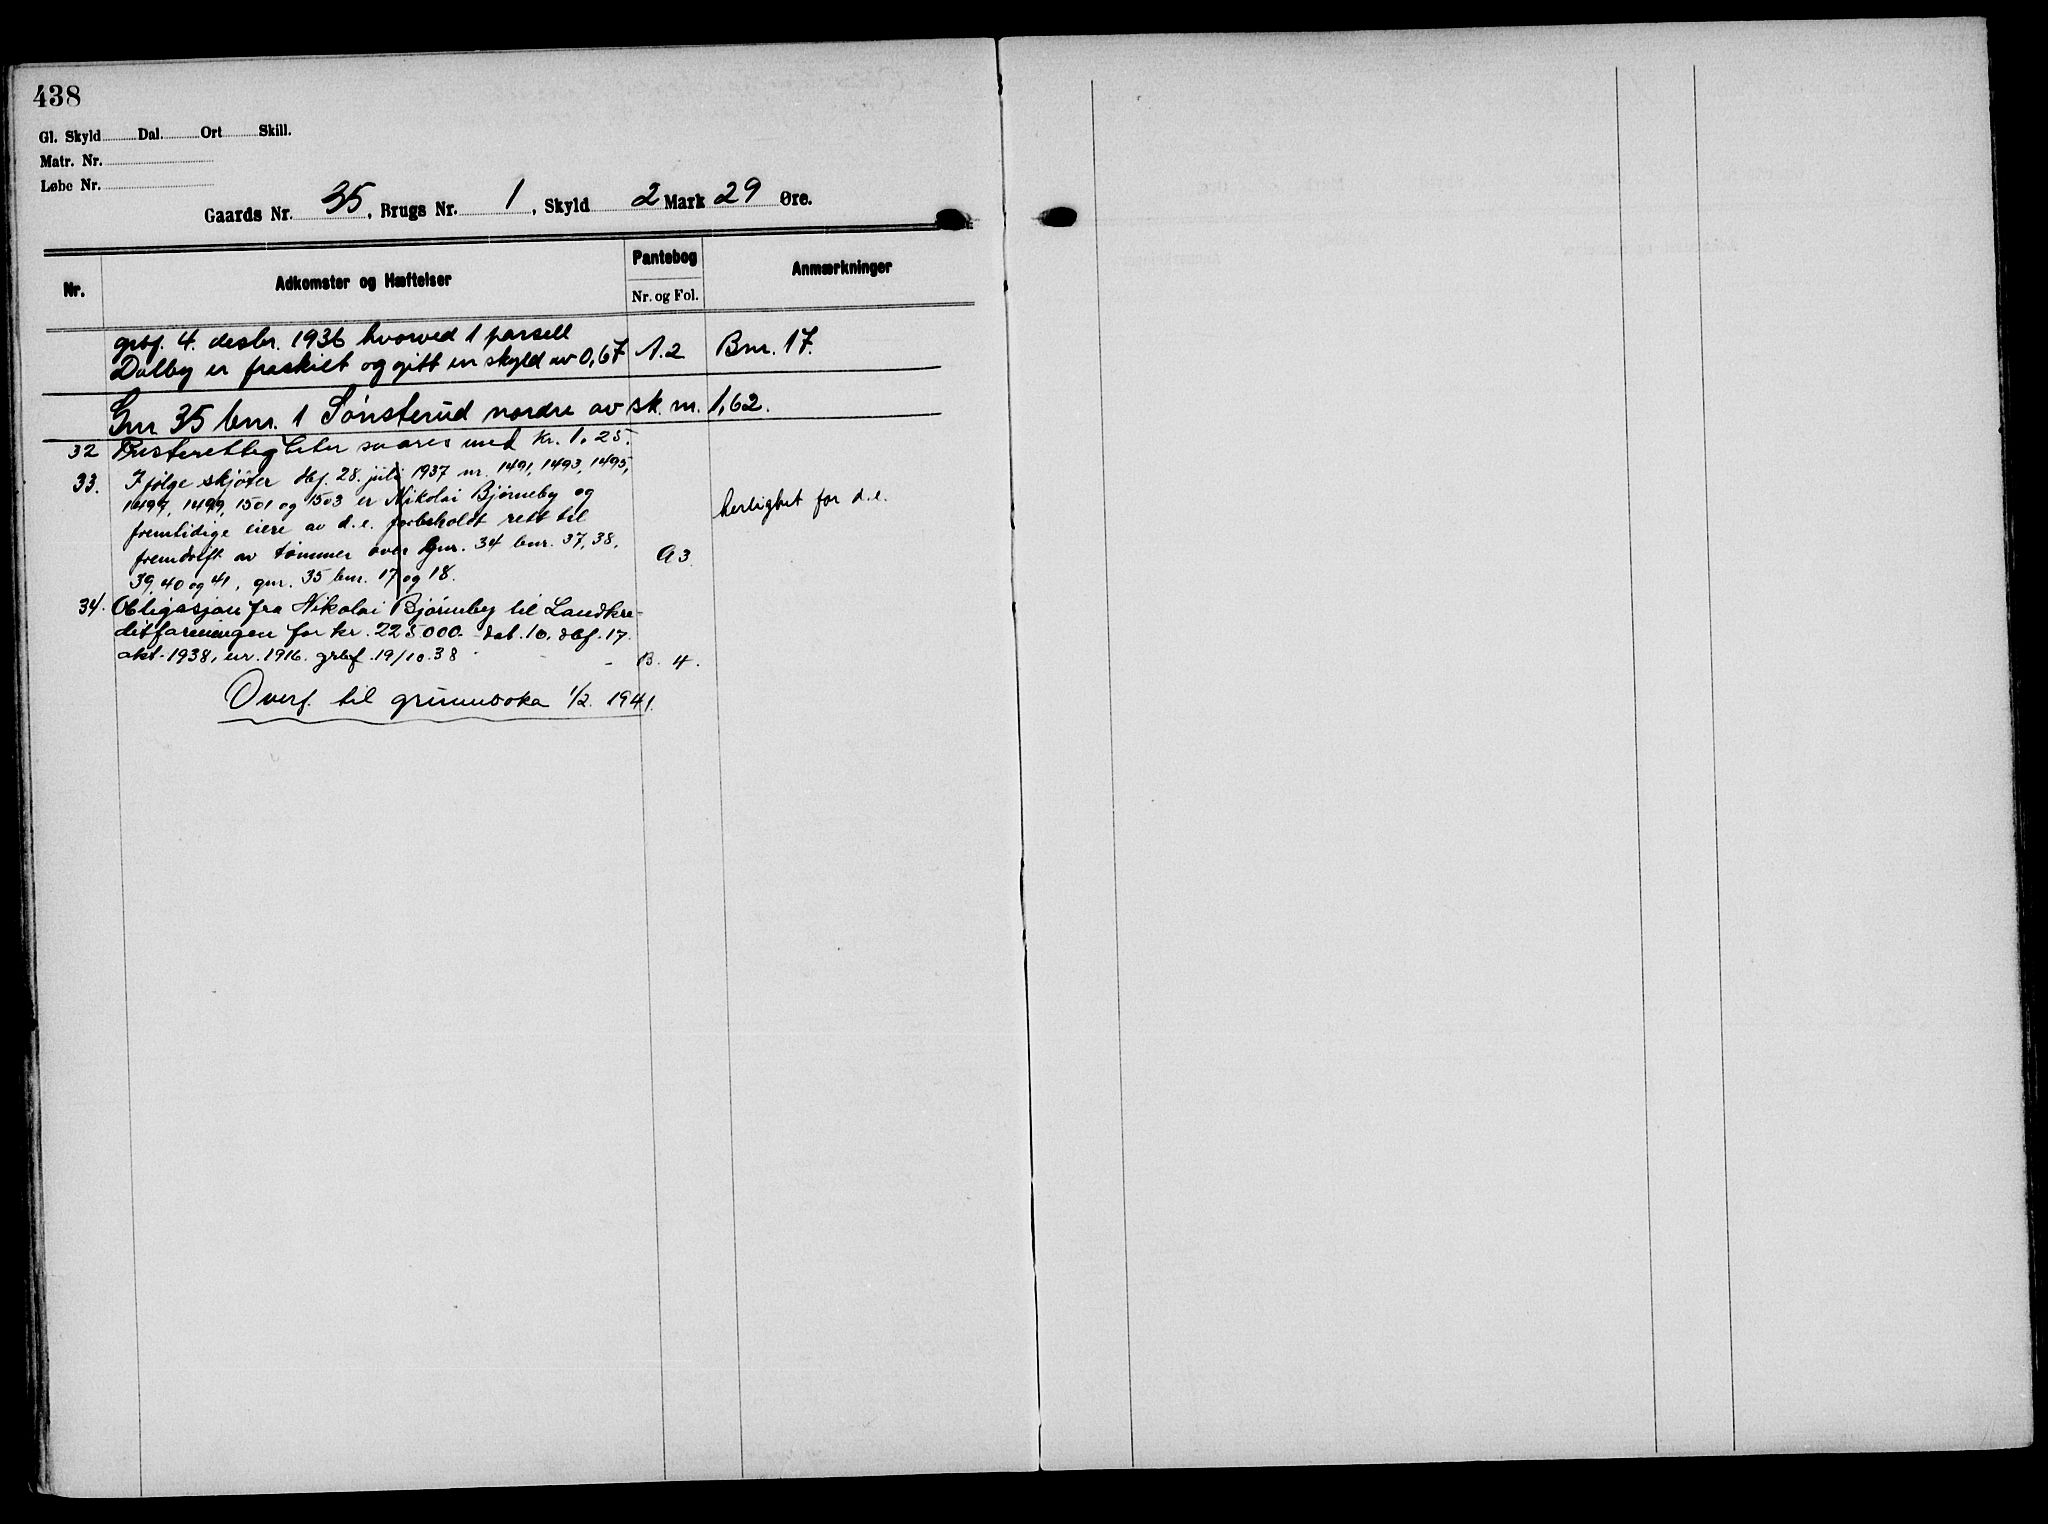 438
Gl. Skyld Dal. Ort Skill.
Matr. Nr.
Løbe Nr.
Gaards Nr. 35, Brugs Nr. 1, Skyld 2 Mark 29 Øre.
Nr. Adkomster og Hæftelser Pantebog Anmærkninger
Nr. og Fol.
grbf. 4. desbr. 1936 hvorved 1 parsell
Dalby er fraskilt og gitt en skyld av 0,67 A.2 Bnr. 17.
Gnr 35 bnr. 1 Sónsterud nordre av sk. m. 1,62.
32 svares med kr. 1,25.
33. Ifølge skjøter dbf. 28. juli 1937 nr. 1491, 1493, 1495,
1497, 1499, 1501 og 1503 er Nikolai Bjørneby og
fremtidige eiere av d.e. forbeholdt rett til herlighet for d.e.
fremdrift av tømmer over gnr. 34 bnr. 37, 38, A 3.
39, 40 og 41, gnr. 35 bnr. 17 og 18.
34. Obligasjon fra Nikolai Bjørneby til Landkre-
ditforeningen for kr. 225.000.- dat. 10. dbf. 17.
okt. 1938, nr. 1916. grbf. 19/10.38 - - - B. 4.
Overf. til grunnboka 1/2. 1941.